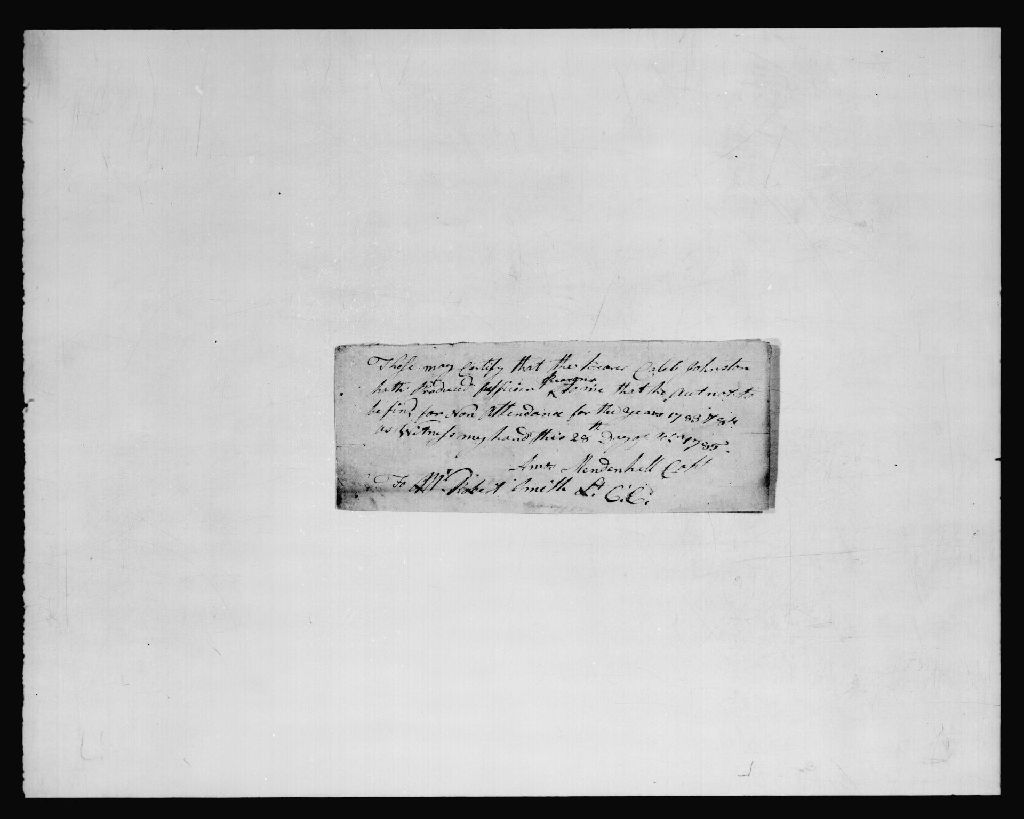 These may Certify that the bearer Caleb Johnston
hath Produced sufficien reasons to me that he out not to
be find for Non Attendance for the years 1783 & 84
as Witness my hand this 28th Day of 1785.
Amos Mendenhall Capt
To Mr Robert Smith Lt C:C: